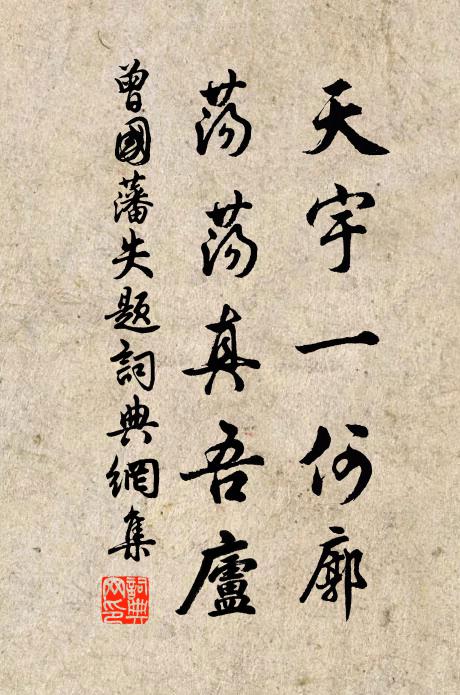 天宇一何廓
蕩蕩真吾廬
曾國藩失題詞典網集
詞典
网印